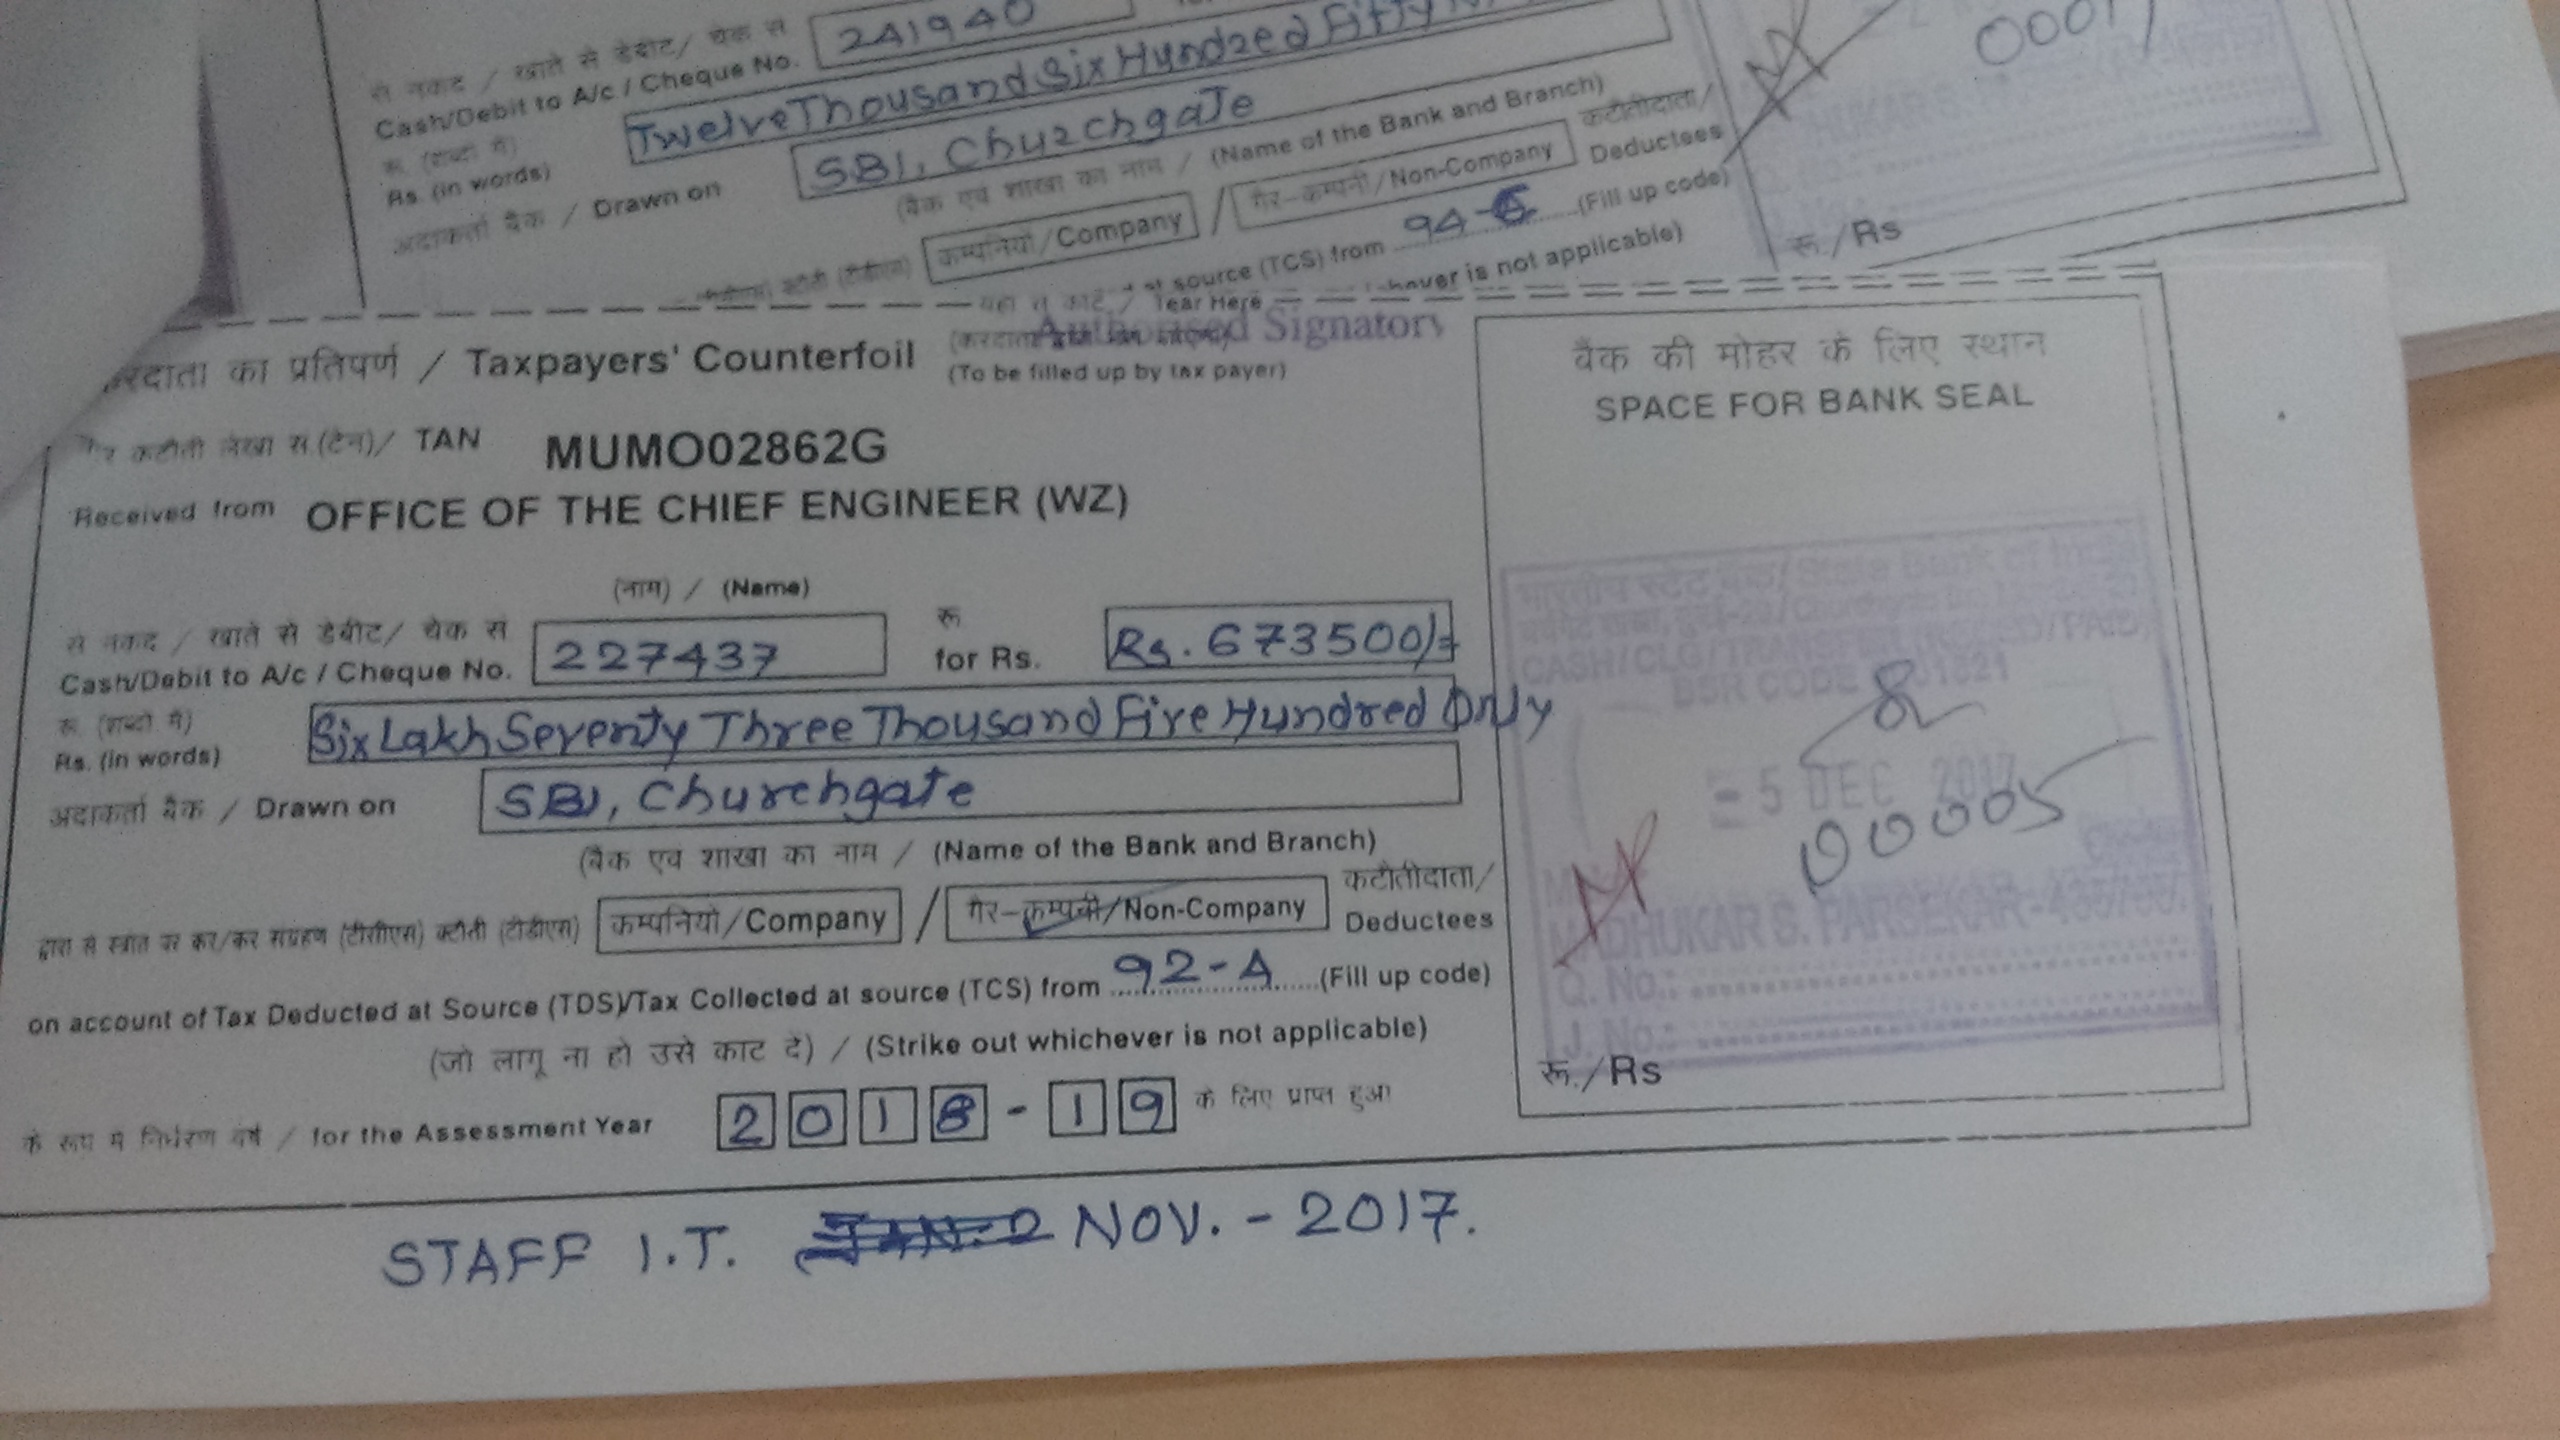 241940
00017
से नकद / खाते से डेबीट/ चेक सं
Cash/Debit to A/c / Cheque No.
रू. (शब्दों में)
Rs. (in words) Twelve Thousand Six Hundred Fifty
अदाकर्ता बैंक / Drawn on SBI, Churchgate
(बैंक एवं शाखा का नाम / (Name of the Bank and Branch)
कम्पनियों/Company / गैर-कम्पनी/Non-Company कटौतीदाता/ Deductees
at source (TCS) from 94- (Fill up code)
is not applicable)
रू./Rs
Tear Here
Authorised Signatory
करदाता का प्रतिपर्ण / Taxpayers' Counterfoil (To be filled up by tax payer)
बैंक की मोहर के लिए स्थान
SPACE FOR BANK SEAL
कटौती लेखा सं.(टेन)/ TAN MUMO02862G
Received from OFFICE OF THE CHIEF ENGINEER (WZ)
(नाम) / (Name)
से नकद / खाते से डेबीट/ चेक सं रू
Cash/Debit to A/c / Cheque No. 227437 for Rs. Rs. 673500/=
रू. (शब्दों में)
Rs. (in words) Six Lakh Seventy Three Thousand Five Hundred Only
अदाकर्ता बैंक / Drawn on SBI, Churchgate
(बैंक एवं शाखा का नाम / (Name of the Bank and Branch)
द्वारा से स्त्रोत पर कर/कर संग्रहण (टीसीएस) कटौती (टीडीएस) कम्पनियों/Company / गैर-कम्पनी/Non-Company कटौतीदाता/ Deductees
on account of Tax Deducted at Source (TDS)/Tax Collected at source (TCS) from 92-A (Fill up code)
(जो लागू ना हो उसे काट दें) / (Strike out whichever is not applicable)
के रूप में निर्धरण वर्ष / for the Assessment Year 2018-19 के लिए प्राप्त हुआ
भारतीय स्टेट बैंक/ State Bank of India
CASH/CLG/TRANSFER
BSR CODE
- 5 DEC 2017
00005
MADHUKAR S. PARSEKAR
Q. No.:
J. No.:
रू./Rs
STAFF I.T. NOV. - 2017.